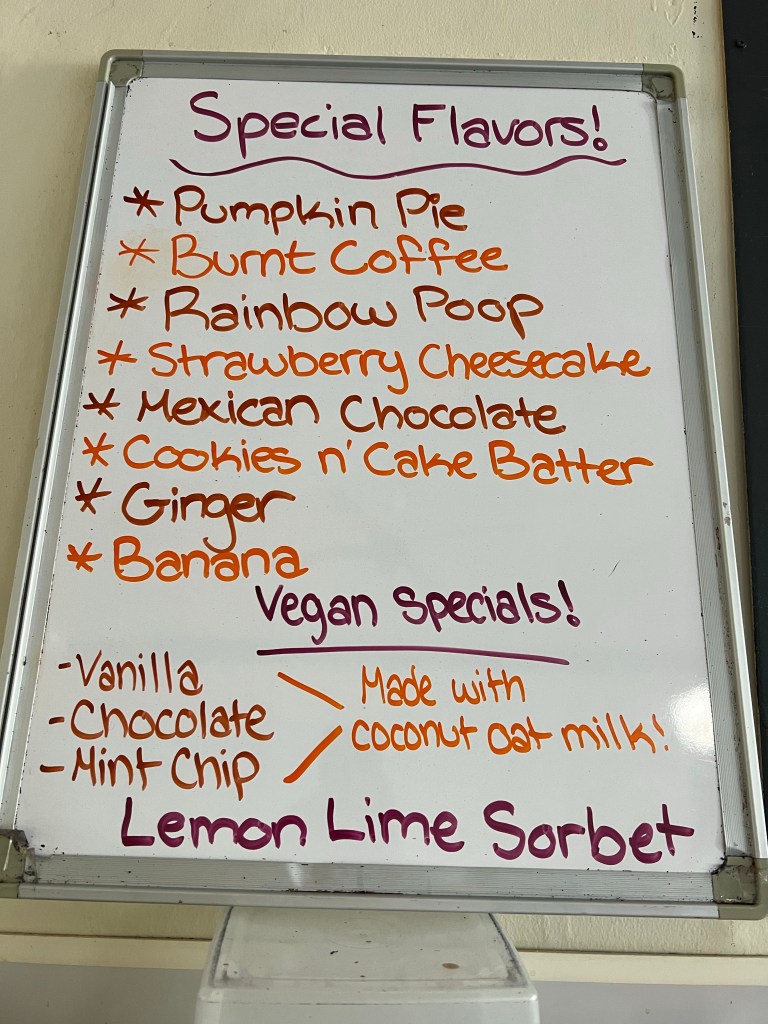 Special Flavors!
* Pumpkin Pie
* Burnt Coffee
* Rainbow Poop
* Strawberry Cheesecake
* Mexican Chocolate
* Cookies n' Cake Batter
* Ginger
* Banana
Vegan Specials!
- Vanilla
- Chocolate
- Mint Chip
Made with
coconut oat milk!
Lemon Lime Sorbet